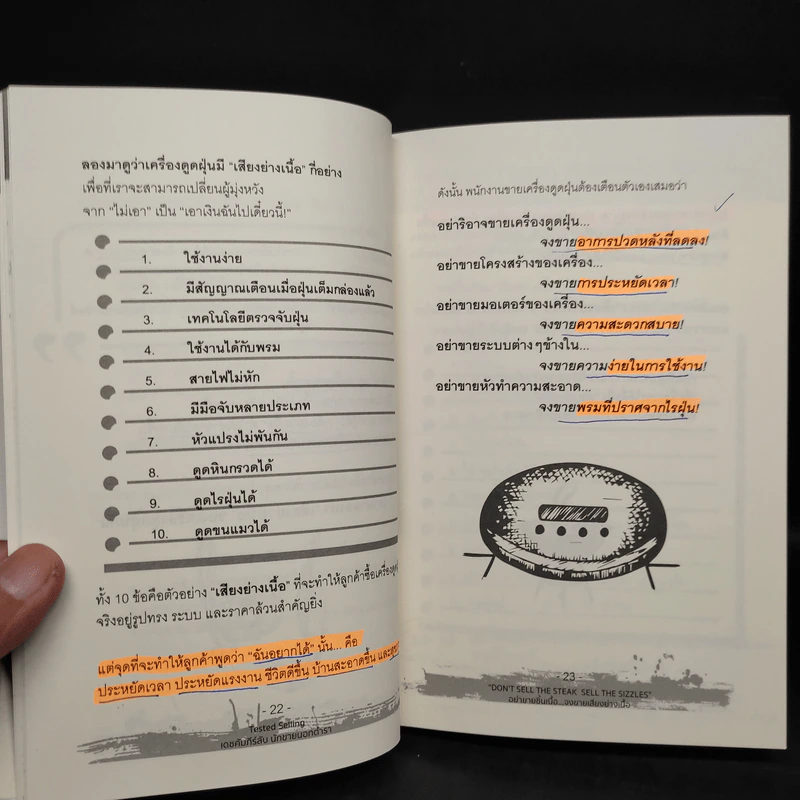 ลองมาดูว่าเครื่องดูดฝุ่นมี "เสียงย่างเนื้อ" กี่อย่าง
เพื่อที่เราจะสามารถเปลี่ยนผู้มุ่งหวัง
จาก "ไม่เอา" เป็น "เอาเงินฉันไปเดี๋ยวนี้!"
1. ใช้งานง่าย
2. มีสัญญาณเตือนเมื่อฝุ่นเต็มกล่องแล้ว
3. เทคโนโลยีตรวจจับฝุ่น
4. ใช้งานได้กับพรม
5. สายไฟไม่หัก
6. มีมือจับหลายประเภท
7. หัวแปรงไม่พันกัน
8. ดูดหินกรวดได้
9. ดูดไรฝุ่นได้
10. ดูดขนแมวได้
ทั้ง 10 ข้อคือตัวอย่าง "เสียงย่างเนื้อ" ที่จะทำให้ลูกค้าซื้อ
จริงอยู่รูปทรง ระบบ และราคาล้วนสำคัญยิ่ง
แต่จุดที่จะทำให้ลูกค้าพูดว่า "ฉันอยากได้" นั้น... คือ
ประหยัดเวลา ประหยัดแรงงาน ชีวิตดีขึ้น บ้านสะอาดขึ้น
- 22 -
Tested Selling
เดชคัมภีร์ลับ นักขายนอกตำรา
ดังนั้น พนักงานขายเครื่องดูดฝุ่นต้องเตือนตัวเองเสมอว่า
อย่าริอาจขายเครื่องดูดฝุ่น...
จงขายอาการปวดหลังที่ลดลง!
อย่าขายโครงสร้างของเครื่อง...
จงขายการประหยัดเวลา!
อย่าขายมอเตอร์ของเครื่อง...
จงขายความสะดวกสบาย!
อย่าขายระบบต่างๆข้างใน...
จงขายความง่ายในการใช้งาน!
อย่าขายหัวทำความสะอาด...
จงขายพรมที่ปราศจากไรฝุ่น!
- 23 -
"DON'T SELL THE STEAK SELL THE SIZZLES"
อย่าขายชิ้นเนื้อ...จงขายเสียงย่างเนื้อ